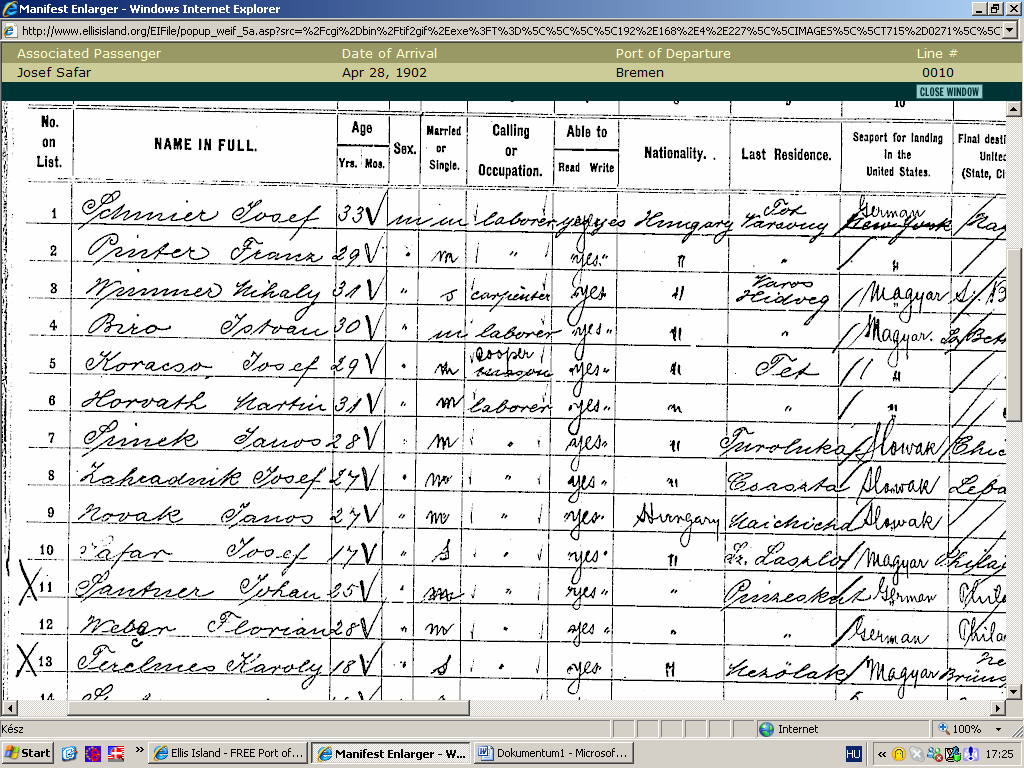 Manifest Enlarger - Windows Internet Explorer
http://www.ellisisland.org/EIFile/popup_weif_5a.asp?src=%2Fcgi%2Dbin%2Ftif2gif%2Eexe%3FT%3D%5C%5C%5C%5C192%2E168%2E4%2E227%5C%5CIMAGES%5C%5CT715%2D0271%5C%5C
Associated Passenger Date of Arrival Port of Departure Line #
Josef Safar Apr 28, 1902 Bremen 0010
CLOSE WINDOW
10
No. on List. NAME IN FULL. Age Yrs. Mos. Sex. Married or Single. Calling or Occupation. Able to Read Write Nationality. Last Residence. Seaport for landing in the United States. Final desti
United
(State, Ci
1 Schmier Josef 33 m m laborer yes yes Hungary Tot Varsony German
2 Pinter Franz 29 " m " yes " " " "
3 Wimmer Mihaly 31 " s carpenter yes " Varos Hidveg Magyar
4 Biro Istvan 30 " m laborer yes " " " Magyar.
5 Koracso Josef 29 " m cooper mason yes " " Tet "
6 Horvath Martin 31 " m laborer yes " " " "
7 Janos 28 " m " yes " " Turoluka Slowak Chic
8 Zahradnik Josef 27 " m " yes " " Csaszta Slowak Leba
9 Novak Janos 27 " m " yes " Hungary Slowak
10 Safar Josef 17 " s " yes " " Sz. Laszlo Magyar Philaj
X 11 Santner Johan 25 " m " yes " " German Phila
12 Weber Florian 28 " m yes " " " German Phila
X 13 Terelmes Karoly 18 " s " yes " Mezölak Magyar
14
Kész Internet 100%
Start » Ellis Island - FREE Port of... Manifest Enlarger - W... Dokumentum1 - Microsof... HU « 17:25